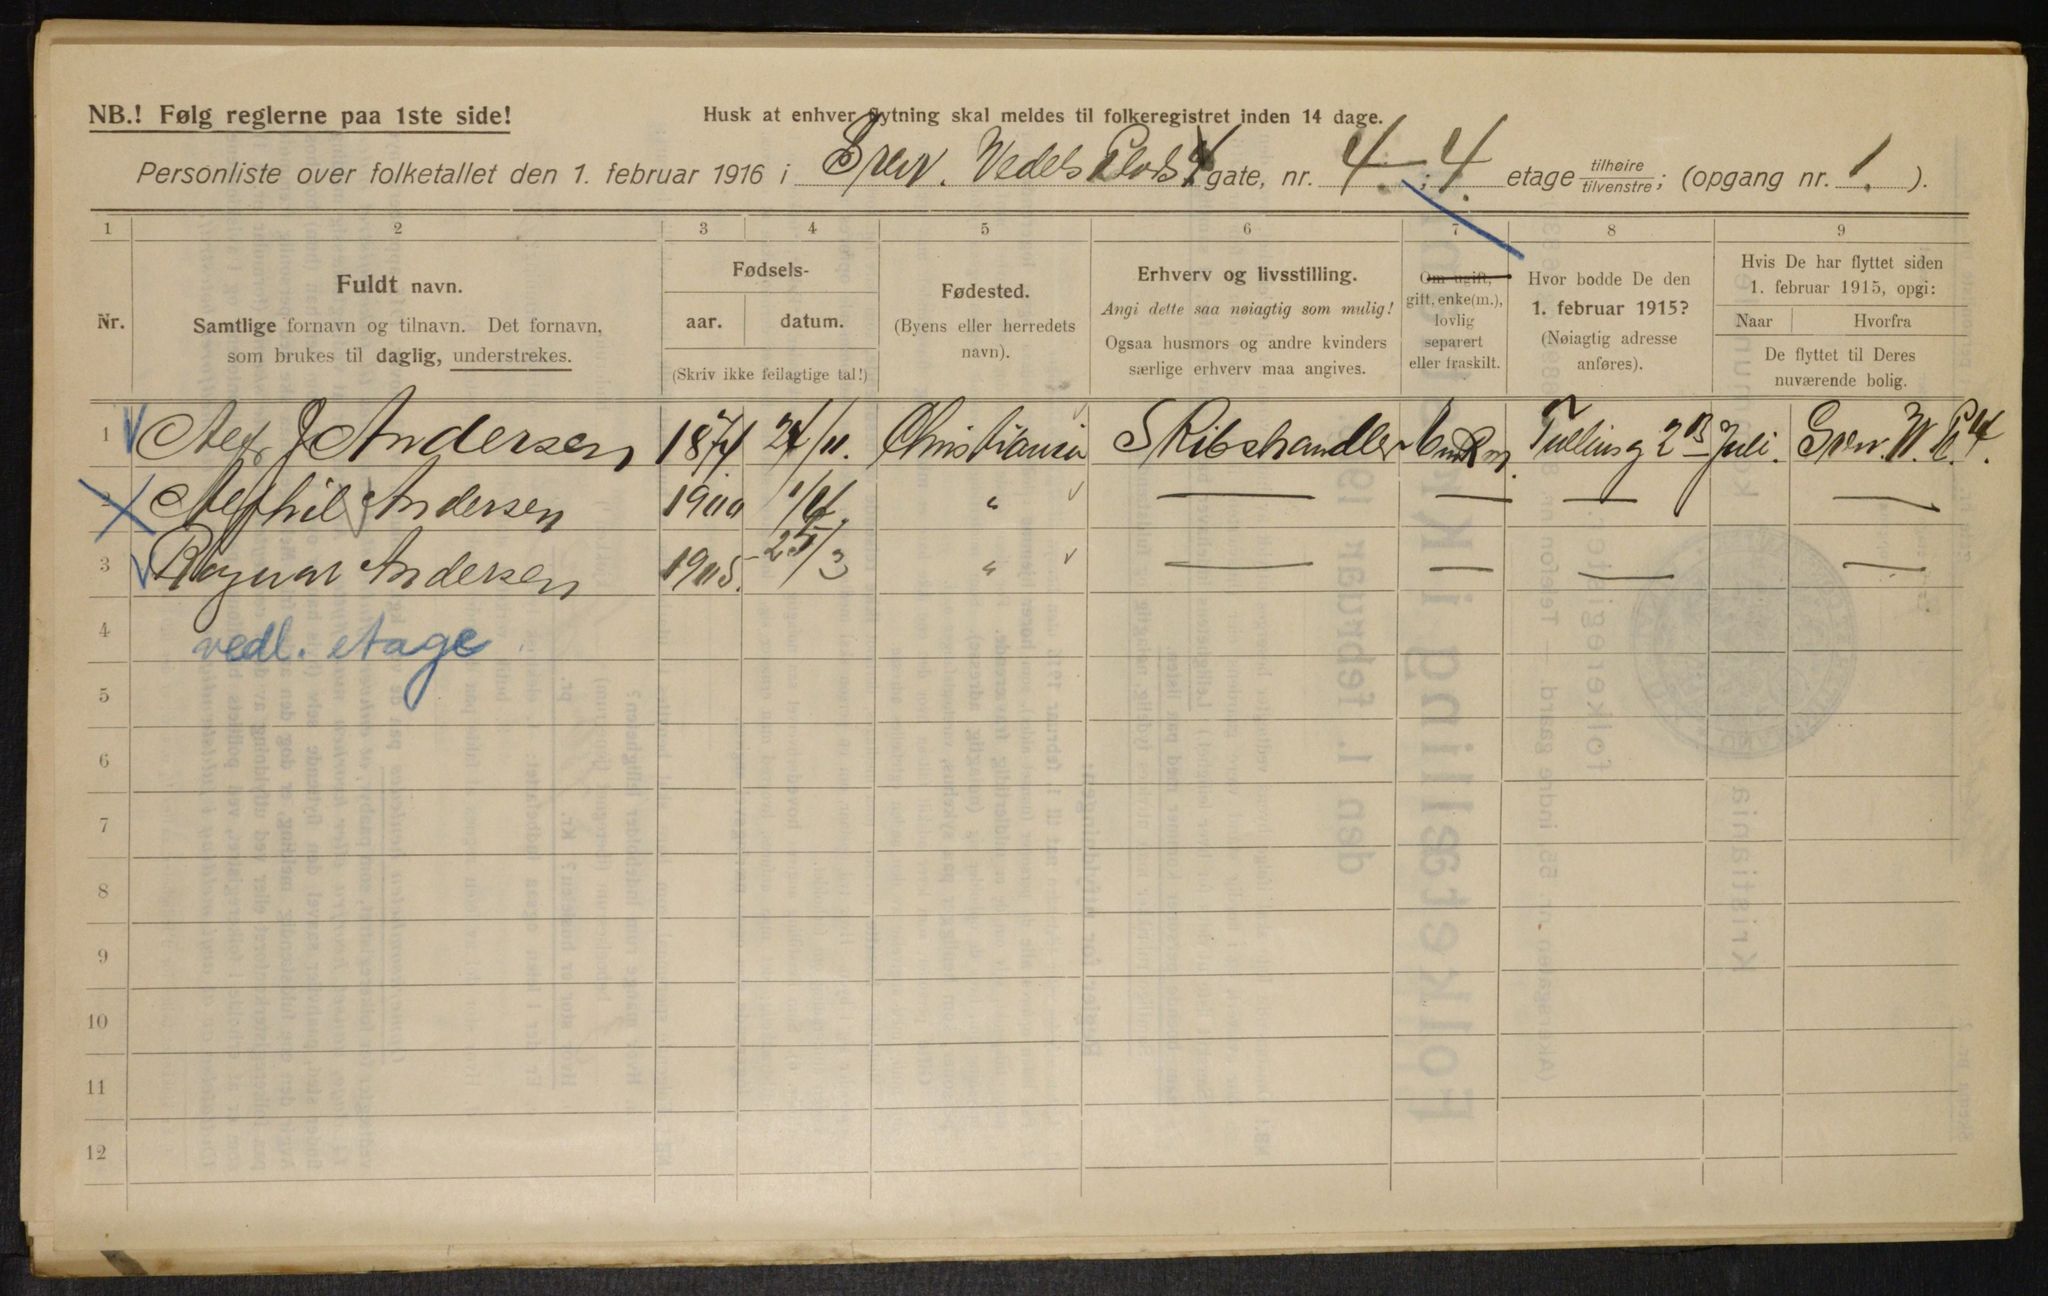 NB.! Følg reglerne paa 1ste side!
Husk at enhver flytning skal meldes til folkeregistret inden 14 dage.
Personliste over folketallet den 1. februar 1916 i Grev. Vedels Plads 4 gate, nr. 4 ; 4. etage tilhøire/tilvenstre; (opgang nr. 1. ).
1 2 3 4 5 6 7 8 9
Nr.
Fuldt navn.
Samtlige fornavn og tilnavn. Det fornavn,
som brukes til daglig, understrekes.
Fødsels-
aar. datum.
(Skriv ikke feilagtige tal!)
Fødested.
(Byens eller herredets
navn).
Erhverv og livsstilling.
Angi dette saa nøiagtig som mulig!
Ogsaa husmors og andre kvinders
særlige erhverv maa angives.
Om ugift,
gift, enke(m.),
lovlig
separert
eller fraskilt.
Hvor bodde De den
1. februar 1915?
(Nøiagtig adresse
anføres).
Hvis De har flyttet siden
1. februar 1915, opgi:
Naar Hvorfra
De flyttet til Deres
nuværende bolig.
1 Alex J Andersen 1874 24/11. Christiania Skibshandler Enkm. Tulling 2B Juli. Grev. W. P. 4.
2 Andersen 1900 " — — — —
3 Ragnar Andersen 1905. 25/3 " — — — —
4 vedl. etage
5
6
7
8
9
10
11
12